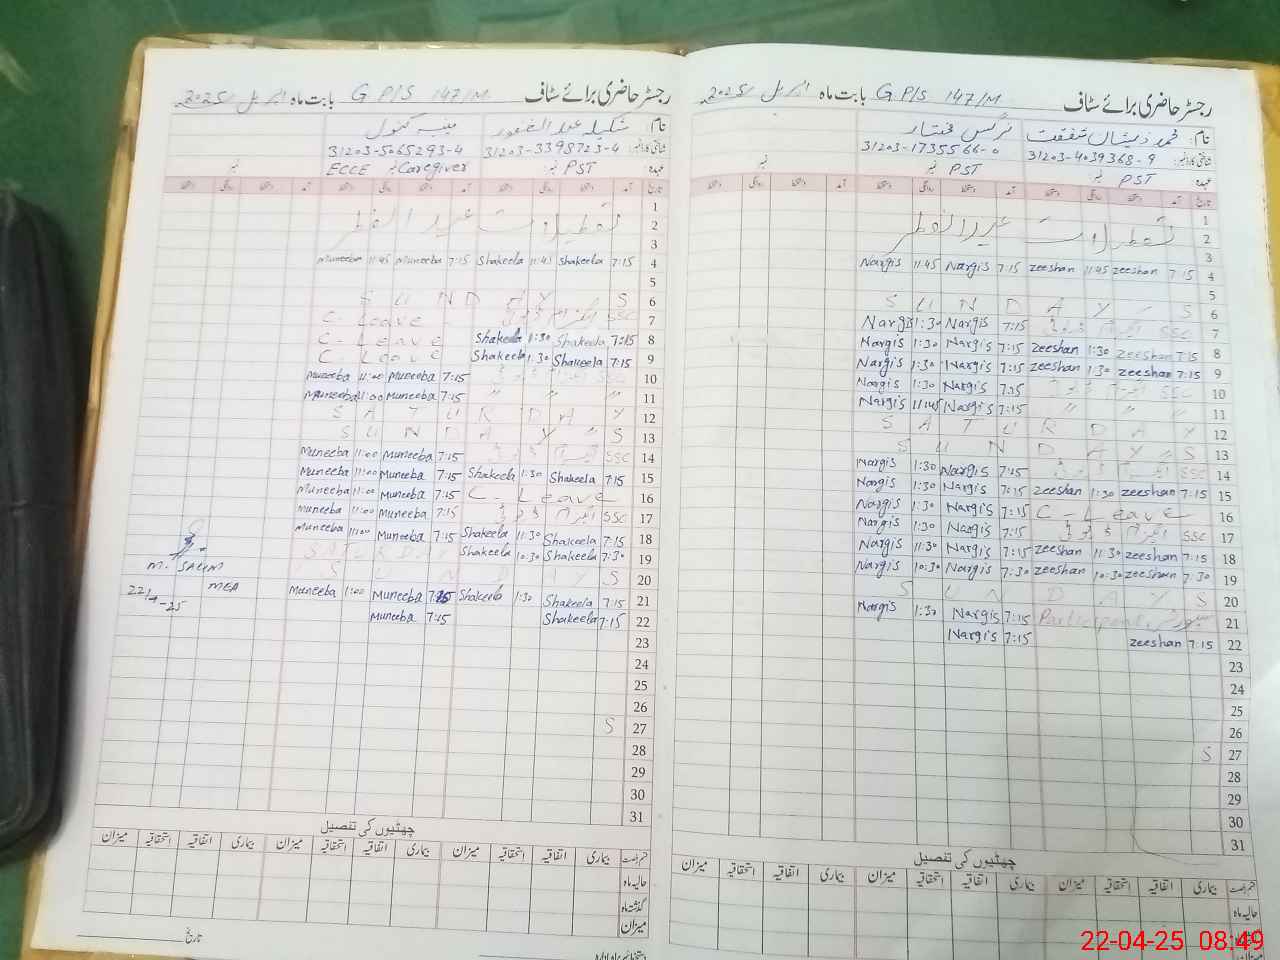 رجسٹر حاضری برائے سٹاف G P/S 147/M بابت ماہ اپریل 2025
نام: شکیلہ عبدالغفور منیبہ کنول
31203-3398723-4 31203-5065293-4
عہدہ PST نمبر ECCE Caregiver نمبر
تاریخ آمد دستخط روانگی دستخط آمد دستخط روانگی دستخط
1
2 تعطیلات عید الفطر
3
4 7:15 Shakeela 11:45 Shakeela 7:15 Muneeba 11:45 Muneeba
5
6 S U N D A Y S
7 C - Leave
8 7:15 Shakeela 1:30 Shakeela C - Leave
9 7:15 Shakeela 1:30 Shakeela C - Leave
10 SSC 7:15 Muneeba 11:00 Muneeba
11 " " " 7:15 Muneeba 11:00 Muneeba
12 S A T U R D A Y
13 S U N D A Y " S
14 SSC 7:15 Muneeba 11:00 Muneeba
15 7:15 Shakeela 1:30 Shakeela 7:15 Muneeba 11:00 Muneeba
16 C - Leave 7:15 Muneeba 11:00 Muneeba
17 SSC 7:15 Muneeba 11:00 Muneeba
18 7:15 Shakeela 11:30 Shakeela 7:15 Muneeba 11:00 Muneeba
19 7:30 Shakeela 10:30 Shakeela
20 S U N D A Y S
21 7:15 Shakeela 1:30 Shakeela 7:15 Muneeba 1:00 Muneeba
22 7:15 Shakeela 7:15 Muneeba
M. SALIM
MEA
22/4-25
23
24
25
26
27 S
28
29
30
31
چھٹیوں کی تفصیل
قسم رخصت بیماری اتفاقیہ استحقاقیہ میزان بیماری اتفاقیہ استحقاقیہ میزان بیماری اتفاقیہ استحقاقیہ میزان
حالیہ ماہ
گذشتہ ماہ
میزان
تاریخ
رجسٹر حاضری برائے سٹاف G P/S 147/M بابت ماہ اپریل 2025
نام: محمد ذیشان شفقت نرگس مختار
31203-4039368-9 31203-1735566-0
عہدہ PST نمبر PST نمبر
تاریخ آمد دستخط روانگی دستخط آمد دستخط روانگی دستخط
1
2 تعطیلات عید الفطر
3
4 7:15 zeeshan 11:45 zeeshan 7:15 Nargis 11:45 Nargis
5
6 S U N D A Y - S
7 SSC 7:15 Nargis 1:30 Nargis
8 7:15 zeeshan 1:30 zeeshan 7:15 Nargis 1:30 Nargis
9 7:15 zeeshan 1:30 zeeshan 7:15 Nargis 1:30 Nargis
10 SSC 7:15 Nargis 1:30 Nargis
11 " " " 7:15 Nargis 11:45 Nargis
12 S A T U R D A Y
13 S U N D A Y " S
14 SSC 7:15 Nargis 1:30 Nargis
15 7:15 zeeshan 1:30 zeeshan 7:15 Nargis 1:30 Nargis
16 C - Leave 7:15 Nargis 1:30 Nargis
17 SSC 7:15 Nargis 1:30 Nargis
18 7:15 zeeshan 11:30 zeeshan 7:15 Nargis 11:30 Nargis
19 7:30 zeeshan 10:30 zeeshan 7:30 Nargis 10:30 Nargis
20 S U N D A Y S
21 Participant 7:15 Nargis 1:30 Nargis
22 7:15 zeeshan 7:15 Nargis
23
24
25
26
27 S
28
29
30
31
چھٹیوں کی تفصیل
قسم رخصت بیماری اتفاقیہ استحقاقیہ میزان بیماری اتفاقیہ استحقاقیہ میزان بیماری اتفاقیہ استحقاقیہ میزان
حالیہ ماہ
22-04-25 08:49